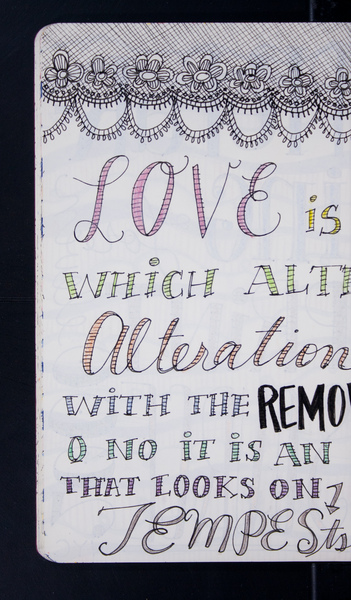 LOVE is
WHiCH ALT
Alteration
WiTH THE REMO
O NO iT iS AN
THAT LOOKS ON
TEMPESts